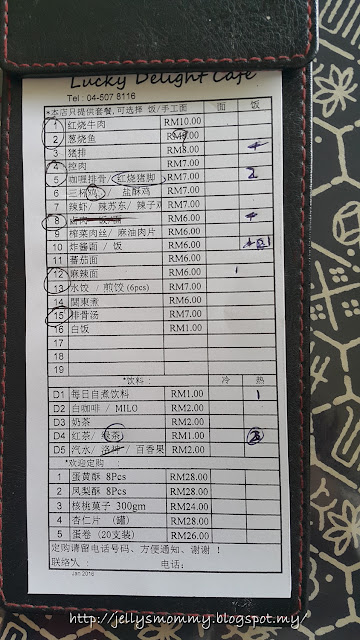 Lucky Delight Cafe
Tel : 04-507 8116
*本店只提供套餐,可选择 饭/手工面 面 饭
1 红烧牛肉 RM10.00
2 葱烧鱼
3 猪排 RM8.00
4 控肉 RM7.00 2
5 咖喱排骨/红烧猪脚 RM7.00
6 三杯鸡 / 盐酥鸡 RM7.00
7 辣虾/ 辣苏东/ 辣子 RM7.00
8 卤肉 饭 RM6.00
9 榨菜肉丝/ 麻油肉片 RM6.00
10 炸酱面 / 饭 RM6.00
11 蕃茄面 RM6.00
12 麻辣面 RM6.00 1
13 水饺 / 煎饺 (6pcs) RM7.00
14 関東煮 RM6.00
15 排骨汤 RM7.00
16 白饭 RM1.00
17
18
19
*饮料 : 冷 热
D1 每日自煮饮料 RM1.00 1
D2 白咖啡 / MILO RM2.00
D3 奶茶 RM2.00
D4 红茶/ 绿茶 RM1.00
D5 汽水/ 洛神 / 百香果 RM2.00
*欢迎定购 :
1 蛋黄酥 8Pcs RM28.00
2 凤梨酥 8Pcs RM28.00
3 核桃菓子 300gm RM24.00
4 杏仁片 (罐) RM28.00
5 蛋卷 (20支装) RM26.00
定购请留电话号码、方便通知、谢谢 !
联络人 : 电话:
Jan 2016
http://jellysmommy.blogspot.my